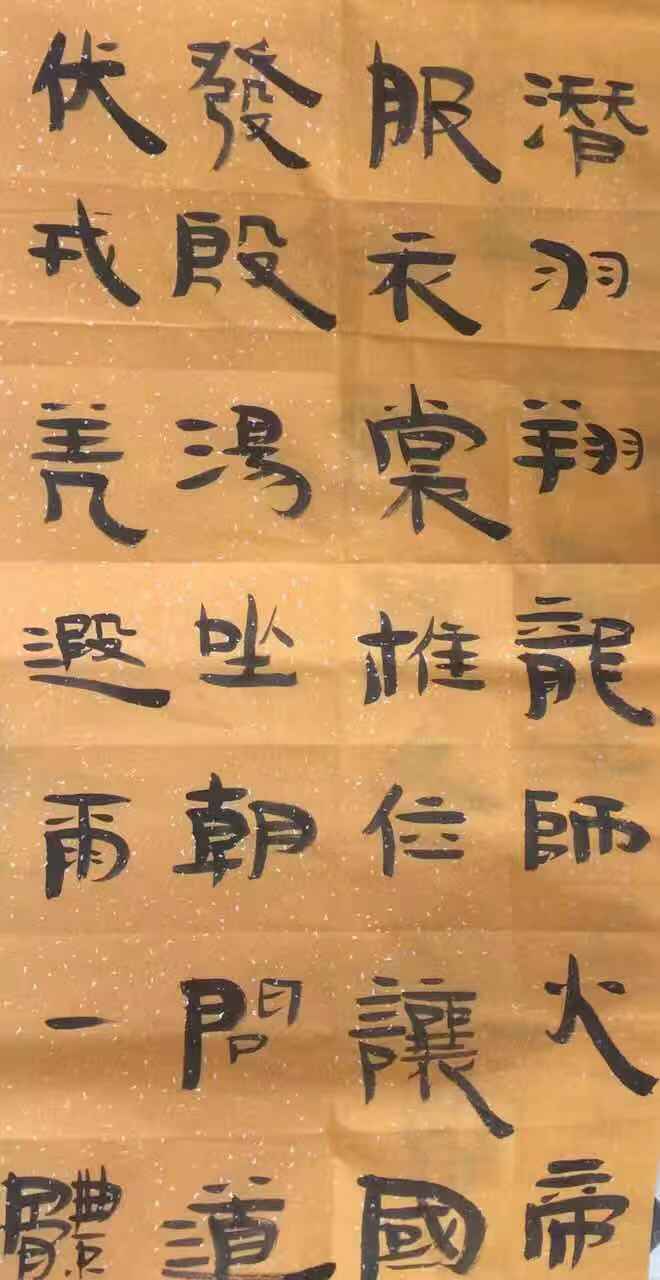 潜羽翔龍師火帝
服衣裳推位讓國
發殷湯坐朝問道
伏戎羌遐爾一體